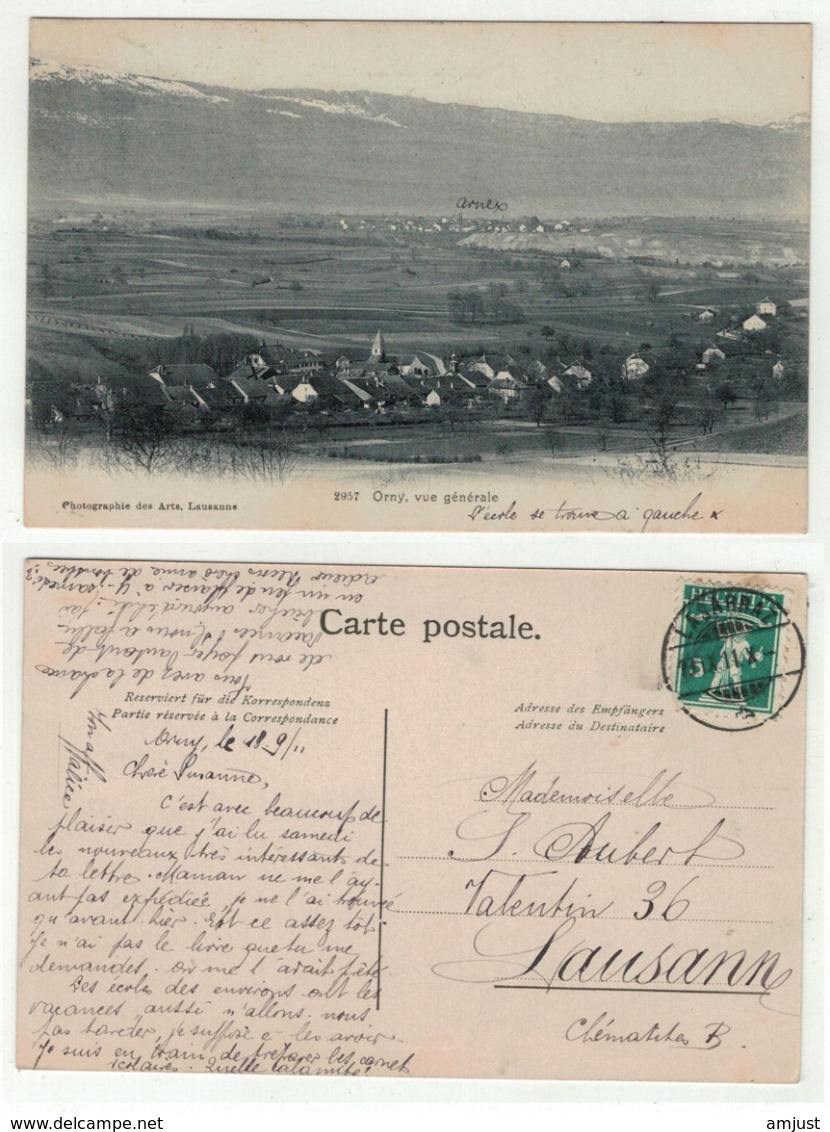 Arnex
2957 Orny, vue générale
Photographie des Arts, Lausanne
L'école se trouve à gauche x
Carte postale.
Reserviert für die Korrespondenz
Partie réservée à la Correspondance
Adresse des Empfängers
Adresse du Destinataire
Orny, le 18 9/11
Chère Susanne,
C'est avec beaucoup de
plaisir que j'ai lu samedi
les nouveaux très intéressants de
ta lettre. Maman ne me l'ay-
ant pas expédiée, je ne l'ai trouvé
qu'avant hier. Est ce assez tôt
Je n'ai pas le livre que tu me
demandes. On me l'avait prêté.
Les écoles des environs ont les
vacances aussi n'allons-nous
pas tarder, je suppose à les avoir.
Je suis en train de préparer les carnets
scolaires. Quelle calamité!
Vous avez de la chance
de vous payer autant de
vacances!
Mademoiselle
S. Aubert
Valentin 36
Lausanne
amjust